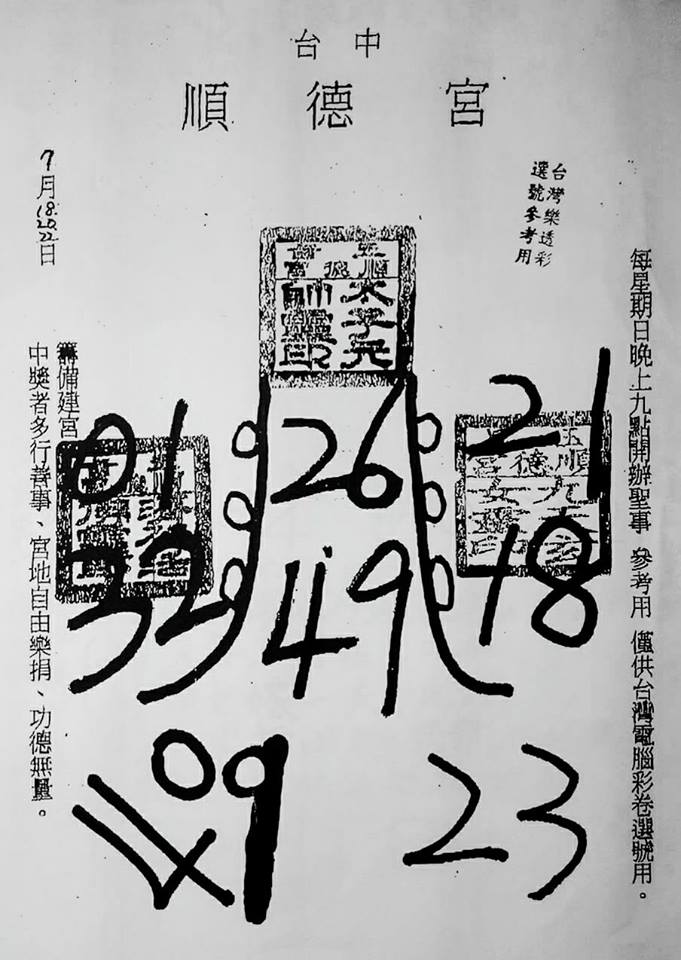 台中
順德宮
台灣樂透彩
選號參考用
7月18.20.22日
每星期日晚上九點開辦聖事 參考用 僅供台灣電腦彩卷選號用。
籌備建宮
中獎者多行善事、宮地自由樂捐、功德無量。
太子元
01 26 21
49 18
09 23